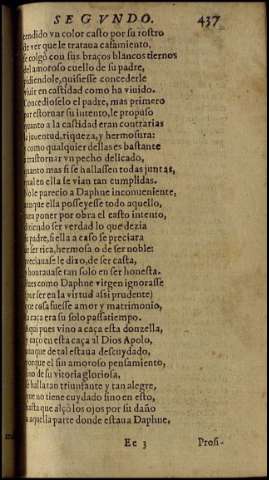 SEGVNDO. 437
endido vn color casto por su rostro
de ver que le trataua casamiento,
se colgò con sus braços blancos tiernos
del amoroso cuello de su padre,
pidiendole, quisiesse concederle
viuir en castidad como ha viuido.
Concedioselo el padre, mas primero
por estornar su intento, le propuso
quanto a la castidad eran contrarias
la juuentud, riqueza, y hermosura:
como qualquier dellas es bastante
trastornar vn pecho delicado,
quanto mas si se hallassen todas juntas,
qual en ella se vian tan cumplidas.
No le parecio a Daphne inconueniente,
aunque ella posseyesse todo aquello,
para poner por obra el casto intento,
diziendo ser verdad lo que dezia
su padre, si ella a caso se preciara
de ser rica, hermosa o de ser noble:
preciauase le dixo, de ser casta,
y honrauase tan solo en ser honesta.
Pues como Daphne virgen ignorasse
(por ser en la virtud assi prudente)
que cosa fuesse amor y matrimonio,
la caça era su solo passatiempo.
Aqui pues vino a caça esta donzella,
y caçò en esta caça al Dios Apolo,
aunque de tal estaua descuydado,
porque el sin amoroso pensamiento,
sino de su vitoria gloriosa,
se halla tan triunfante y tan alegre,
que no tiene cuydado sino en esto,
hasta que alçò los ojos por su daño
a aquella parte donde estaua Daphne,
Ee 3 Prosi-